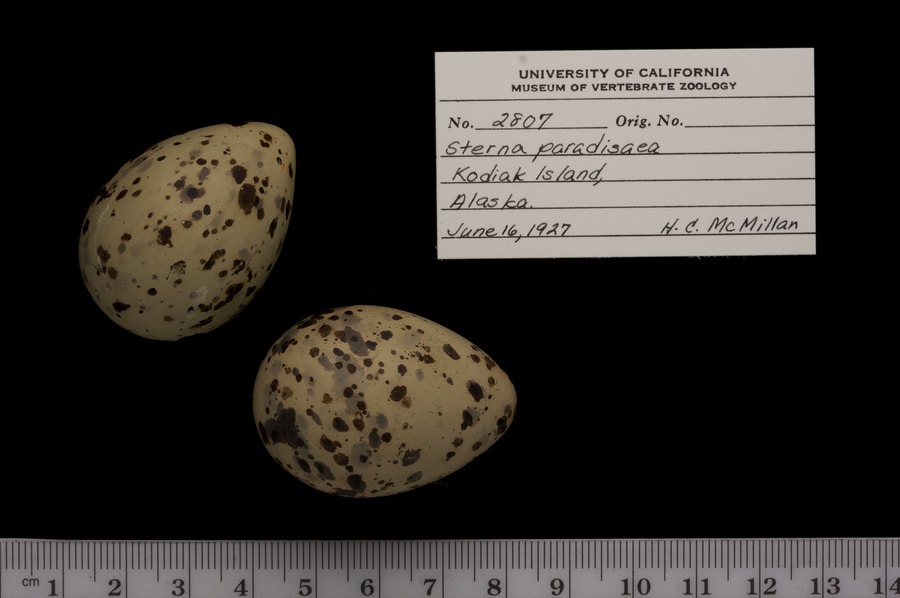 UNIVERSITY OF CALIFORNIA
MUSEUM OF VERTEBRATE ZOOLOGY
No. 2807 Orig. No.
Sterna paradisaea
Kodiak Island,
Alaska.
June 16, 1927 H. C. McMillan
cm 1 2 3 4 5 6 7 8 9 10 11 12 13 14